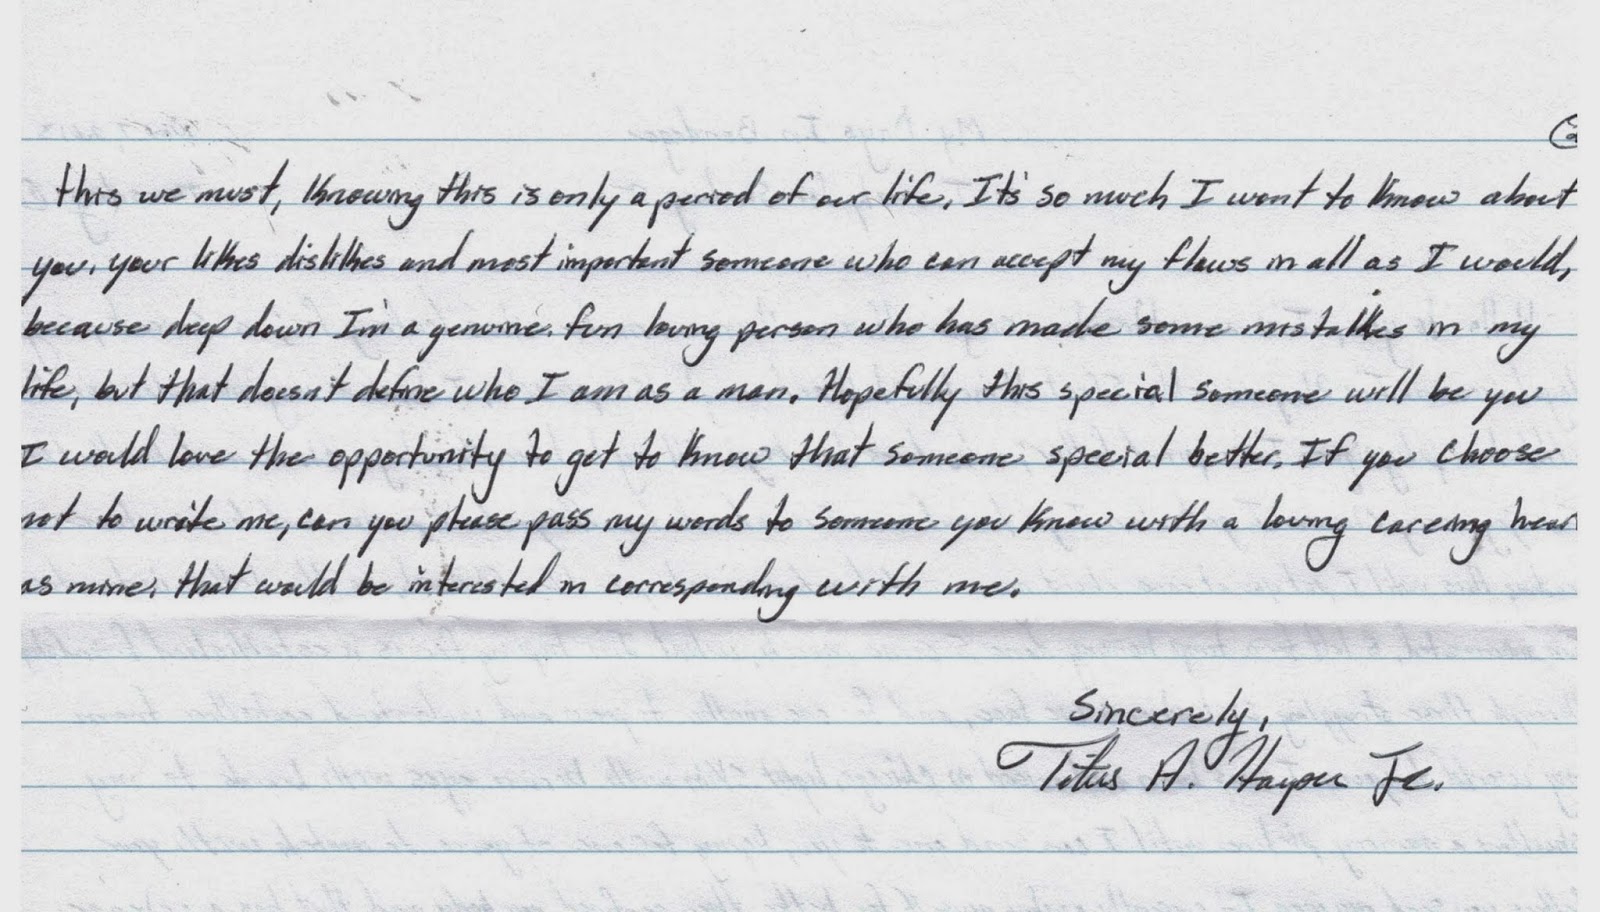 2
this we must, Knowing this is only a period of our life. It's so much I want to Know about
you, your likes dislikes and most important someone who can accept my flaws in all as I would,
because deep down I'm a genuine. fun loving person who has made some mistakes in my
life, but that doesn't define who I am as a man. Hopefully this special someone will be you
I would love the opportunity to get to Know that someone special better. If you choose
not to write me, can you please pass my words to someone you Know with a loving careing hear
as mine. that would be interested in corresponding with me.
Sincerely,
Titus A. Harper Jr.